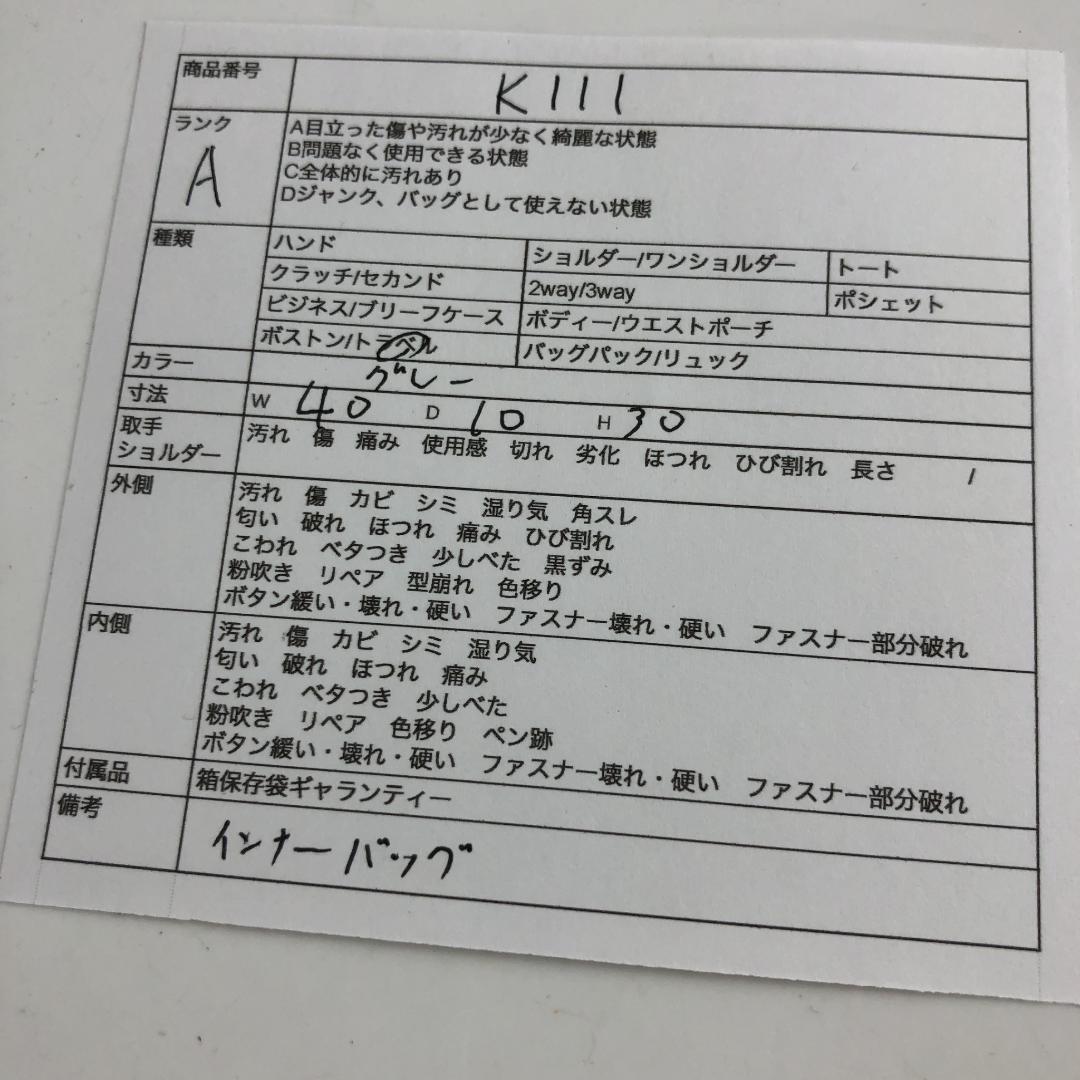 商品番号 K111
ランク A
A目立った傷や汚れが少なく綺麗な状態
B問題なく使用できる状態
C全体的に汚れあり
Dジャンク、バッグとして使えない状態
種類 ハンド ショルダー/ワンショルダー トート
クラッチ/セカンド 2way/3way ポシェット
ビジネス/ブリーフケース ボディー/ウエストポーチ
ボストン/トラベル バッグパック/リュック
カラー グレー
寸法 W 40 D 10 H 30
取手
ショルダー
汚れ 傷 痛み 使用感 切れ 劣化 ほつれ ひび割れ 長さ /
外側
汚れ 傷 カビ シミ 湿り気 角スレ
匂い 破れ ほつれ 痛み ひび割れ
こわれ ベタつき 少しべた 黒ずみ
粉吹き リペア 型崩れ 色移り
ボタン緩い・壊れ・硬い ファスナー壊れ・硬い ファスナー部分破れ
内側
汚れ 傷 カビ シミ 湿り気
匂い 破れ ほつれ 痛み
こわれ ベタつき 少しべた
粉吹き リペア 色移り ペン跡
ボタン緩い・壊れ・硬い ファスナー壊れ・硬い ファスナー部分破れ
付属品 箱保存袋ギャランティー
備考 インナーバッグ